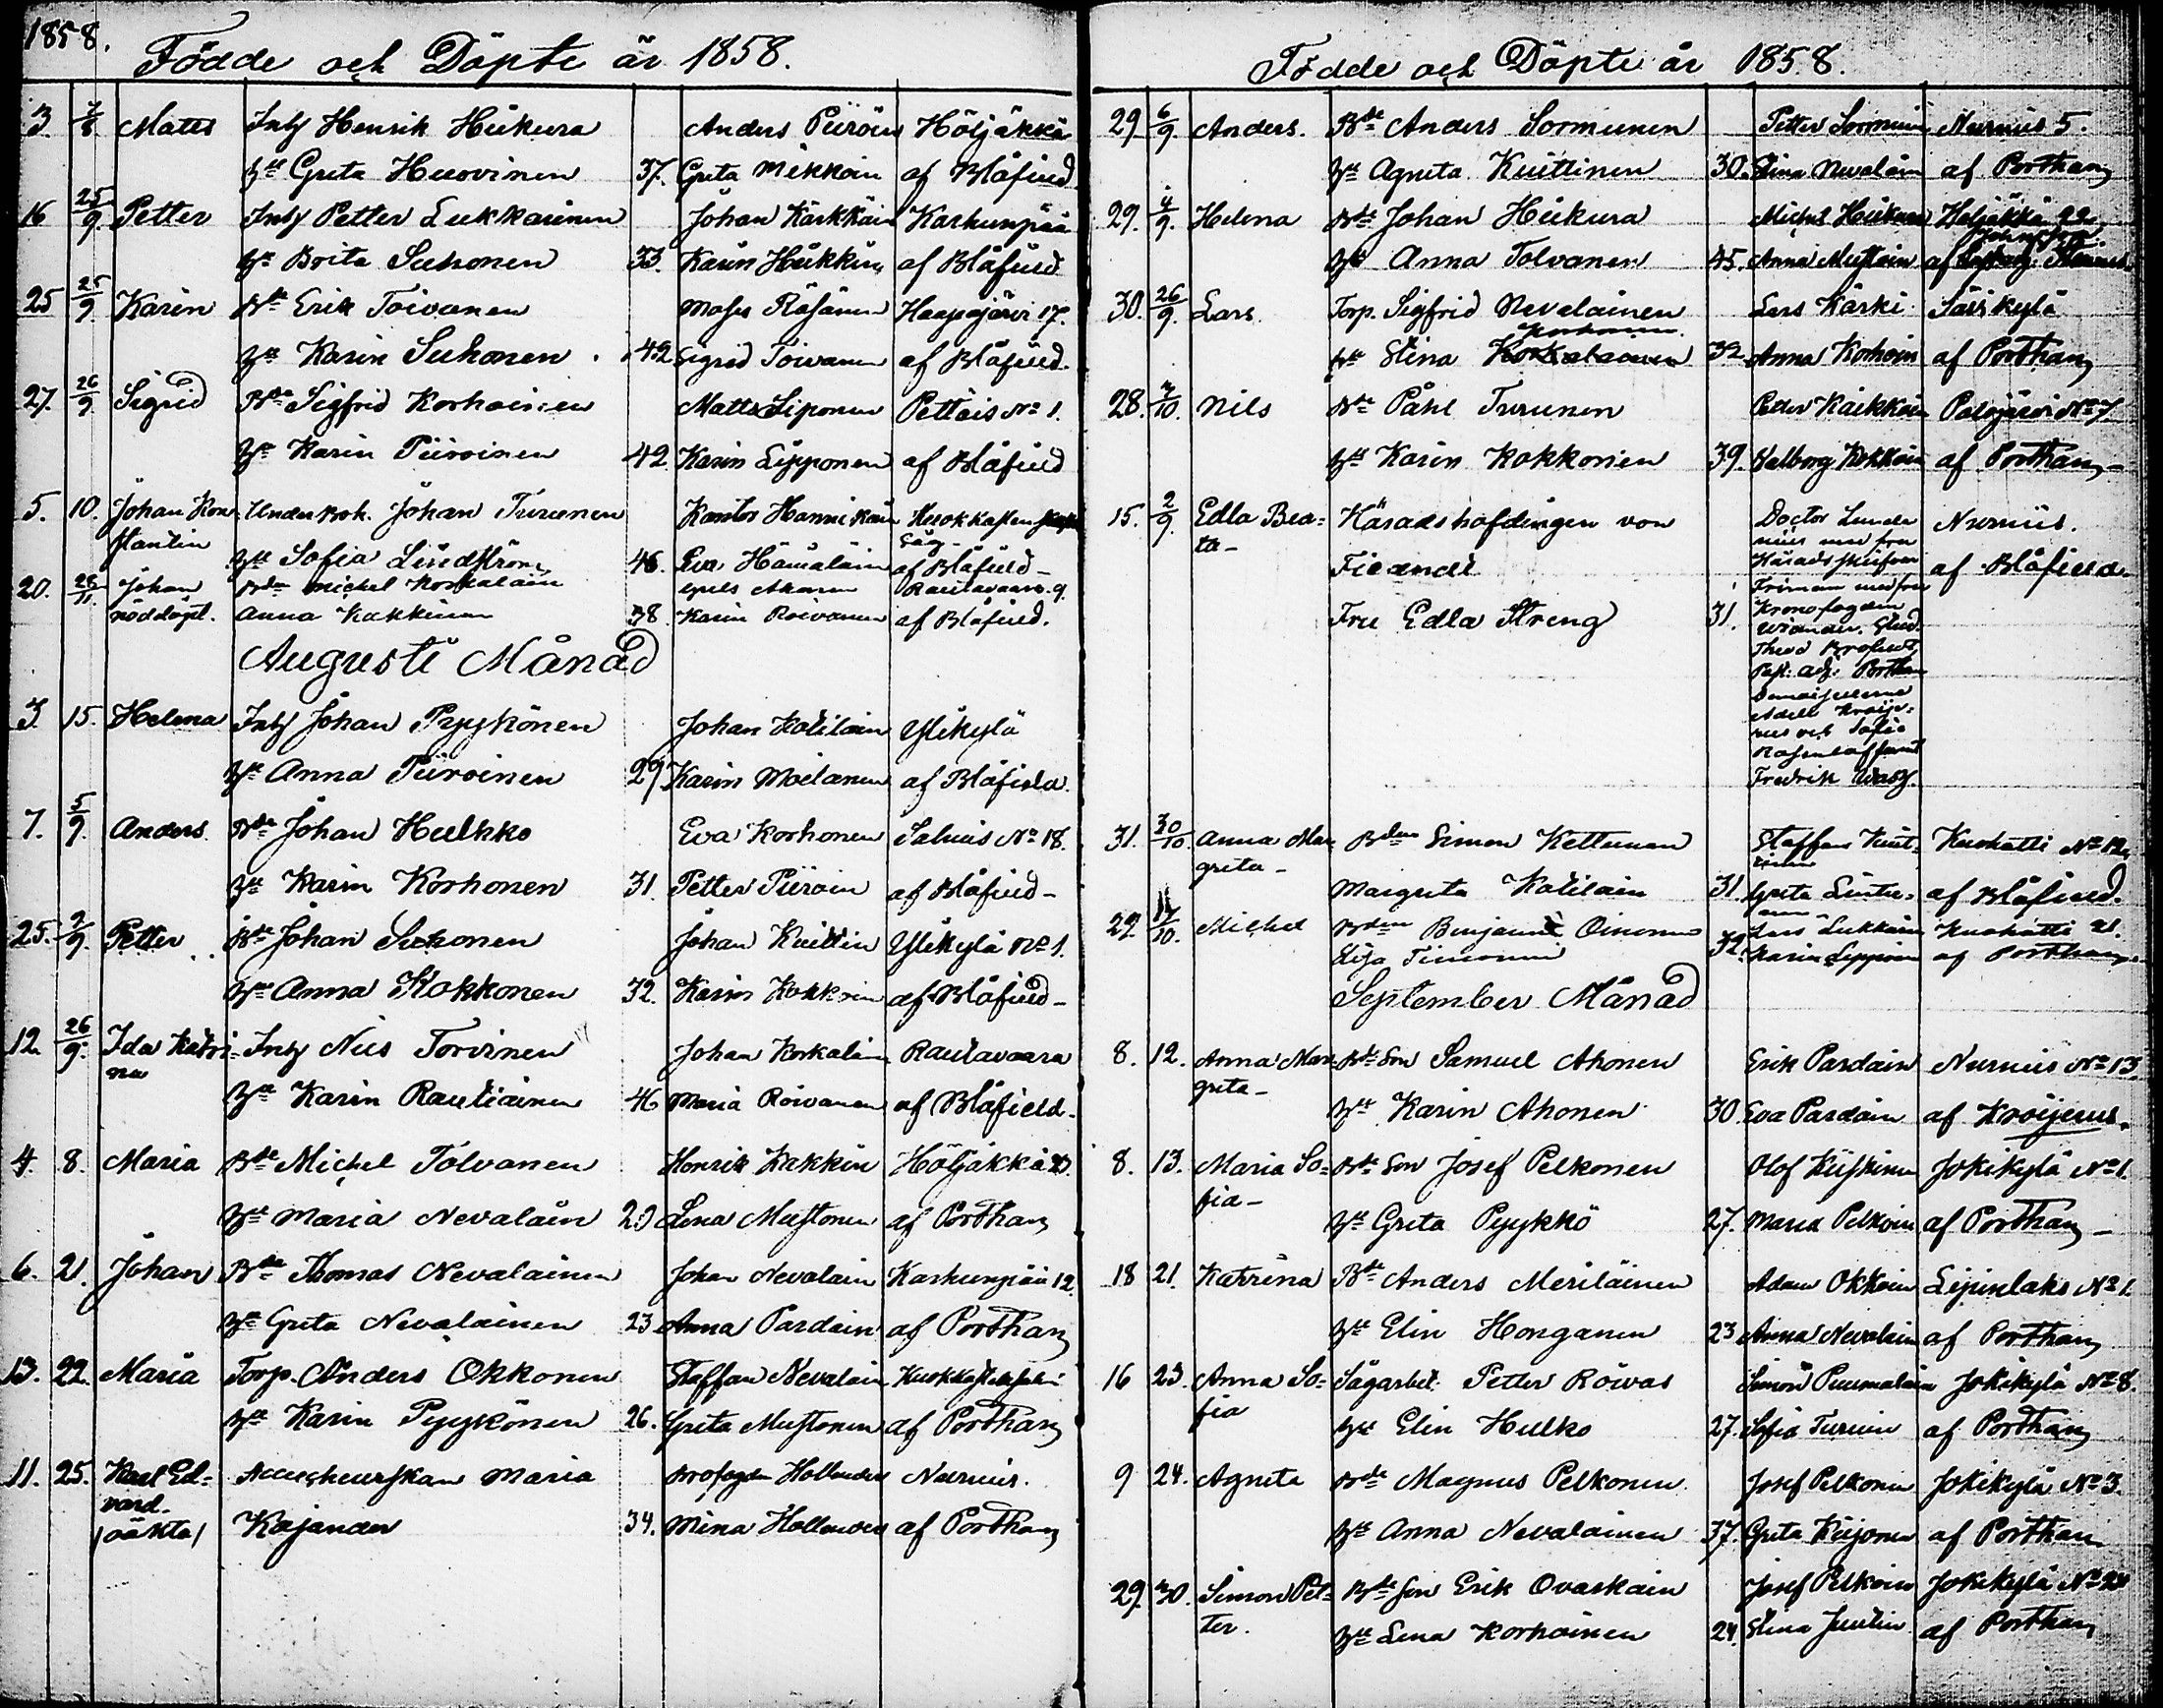 1858.
Födde och Döpte år 1858.
3. 7/8. Matts Inh Henrik Heikura Anders Piiroin Höljäkkä
H:u Greta Huovinen 37. Greta Mikkoin af Blåfield
16 25/9. Petter Inh Petter Lukkarinen Johan Kärkkäin Karhunpää
H:u Brita Suhonen 33. Karin Heikkin af Blåfield
25 25/9. Karin B:de Erik Toivanen Moses Räsänen Haapajärvi 17.
H:u Karin Suhonen. 42 Sigrid Toivanen af Blåfield.
27. 26/9 Sigrid B:de Sigfrid Korhoinen Matts Siponen Pettäis No 1.
H:u Karin Piiroinen 42. Karin Lipponen af Blåfield
5. 10. Johan Kon- Under Bok. Johan Turunen Kantor Hannikain
stantin H:u Sofia Lindström 46. Eva Hämäläin af Blåfield
20. 28/11. Johan B:de Michel Korkalain Akonen Rautavaara. 9.
nöddöpt. Anna Kakkinen 38. Karin Roivanen af Blåfield.
Augusti Månad
3 15. Helena Inh Johan Pyykönen Johan Katilain Ylikylä
H:u Anna Piiroinen 29 Karin Moilanen af Blåfield.
7. 5/9. Anders B:de Johan Hulkko Eva Korhonen Salmis No 18.
H:u Karin Korhonen 31. Petter Piiroin af Blåfield-
25. 2/9. Petter B:de Johan Suhonen Johan Kuittin Ylikylä No 1.
H:u Anna Kokkonen 32. Karin Kokkoin af Blåfield-
12. 26/9. Ida Katri- Inh Nils Torvinen Johan Korkalain Rautavaara
na H:u Karin Rautiainen 46 Maria Roivanen af Blåfield.
4. 8. Maria B:de Michel Tolvanen Henrik Kakkin Höljäkkä
H:u Maria Nevalain 20 Lena Mustonen af Porthan
6. 21. Johan B:de Thomas Nevalainen Johan Nevalain Karhunpää 12.
H:u Greta Nevalainen 23 Anna Pardain af Porthan
13. 22. Maria Torp. Anders Okkonen Staffan Nevalain
H:u Karin Pyykönen 26. Greta Mustonen af Porthan
11. 25. Karl Ed- Accucheurskan Maria Hollender Nurmis.
vard.
/oäkta/ Kajander 34. Mina Hollender af Porthan
Födde och Döpte år 1858.
29 6/9. Anders. B:de Anders Sormunen Petter Sormuin Nurmis 5.
H:u Agneta Kuittinen 30. Stina Nevalain af Porthan
29. 4/9. Helena B:de Johan Heikura Michel Heikura Höljäkkä 22
H:u Anna Tolvanen 45. Anna Mustoin af
30. 26/9. Lars. Torp. Sigfrid Nevalainen Lars Kärki Särkylä
Korhonen
H:u Stina Korkalainen 32 Anna Korhoin af Porthan
28. 3/10. Nils B:de Påhl Turunen Petter Kaikkoin Palojärvi No 7.
H:u Karin Kokkonen 39. Valborg Kokkoin af Porthan-
15. 2/9. Edla Bea- Häradshöfdingen von Doctor Nurmis.
ta- Fieandt af Blåfield.
Fru Edla Streng 31. Kronofogden
Stud.
Porthan
Adele Kroije-
rus och Sofie
Fredrik Wasz.
31. 30/10. Anna Mar- B:den Simon Kettunen Staffan Kuit- Kuohatti No 12.
greta- tinen
Margreta Katilain 31. Greta af Blåfield.
29. 10. Michel B:den Benjamin Oinonen Lars Lukkarin Kuohatti 21.
Lisa Timonen 32. Karin Lippoin af Porthan
September Månad
8. 12. Anna Mar- B:de Son Samuel Ahonen Erik Pardain Nurmis No 13.
greta- H:u Karin Ahonen 30. Eva Pardain af Kroijerus.
8. 13. Maria So- B:de Son Josef Pelkonen Olof Kiiskinen Jokikylä No 1.
fia- H:u Greta Pyykkö 27. Maria Pelkoin af Porthan-
18 21. Katrina B:de Anders Meriläinen Adam Okkoin Lipinlaks No 1.
H:u Elin Honganen 23 Anna Nevalain af Porthan
16 23. Anna So- Sågarbet. Petter Roivas Simon Puumalain Jokikylä No 8.
fia H:u Elin Hulko 27. Sofia Turuin af Porthan
9 24. Agneta B:de Magnus Pelkonen Josef Pelkonen Jokikylä No 3
H:u Anna Nevalainen 37. Greta Kiijonen af Porthan
29. 30. Simon Pet- B:de Son Erik Ovaskain Josef Pelkoin Jokikylä No 21
ter. H:u Lena Korhoinen 24. Stina Juutin af Porthan